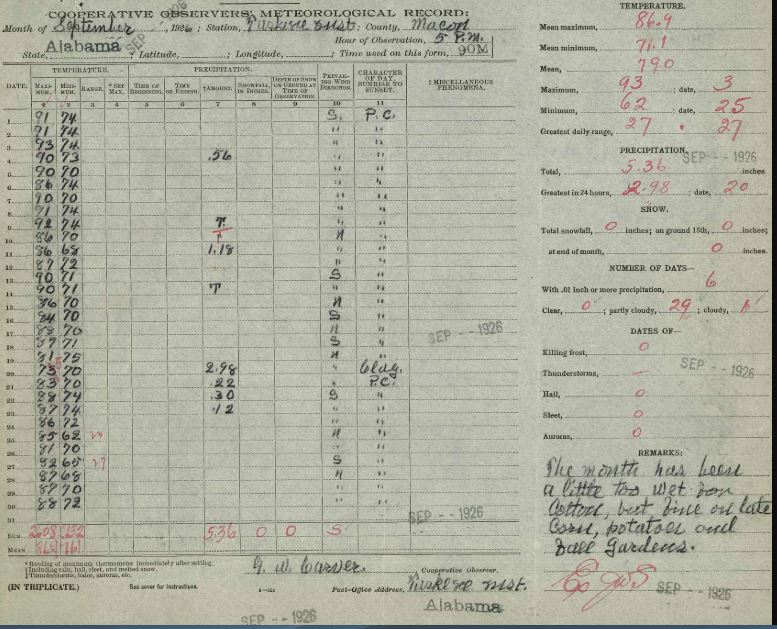 COOPERATIVE OBSERVERS' METEOROLOGICAL RECORD:
Month of September, 1926; Station, Tuskegee Inst; County, Macon
Hour of Observation, 5 P.M.
State, Alabama; Latitude, ; Longitude, ; Time used on this form, 90M
SEP - 1926
DATE. TEMPERATURE. PRECIPITATION. PREVAILING WIND DIRECTION. CHARACTER OF DAY, SUNRISE TO SUNSET. ‡ MISCELLANEOUS PHENOMENA.
MAXIMUM. MINIMUM. RANGE. *SET MAX. TIME OF BEGINNING. TIME OF ENDING. †AMOUNT. SNOWFALL IN INCHES. DEPTH OF SNOW ON GROUND AT TIME OF OBSERVATION.
1 2 3 4 5 6 7 8 9 10 11
1 91 74 S. P.C.
2 91 74 " "
3 93 74 " "
4 90 73 .56 " "
5 90 70 " "
6 86 74 " "
7 90 70 " "
8 91 74 " "
9 92 74 T. " "
10 86 70 T N "
11 86 68 1.18 " "
12 87 72 " "
13 90 71 S "
14 90 71 T " "
15 86 70 N "
16 84 70 S "
17 88 70 N "
18 87 71 S "
19 81 75 N "
20 75 70 2.98 " Cldy.
21 83 70 .22 " P.C.
22 88 74 .30 S "
23 87 74 .12 " "
24 86 72 " "
25 85 62 23 N "
26 81 70 " "
27 92 65 27 S "
28 87 68 N "
29 87 70 " "
30 88 72 " "
31
SUM 2608 2132 5.36 0 0 S
MEAN 86.9 71.1
SEP - - 1926
SEP - - 1926
* Reading of maximum thermometer immediately after setting.
† Including rain, hail, sleet, and melted snow.
‡ Thunderstorms, halos, auroras, etc.
(IN TRIPLICATE.) See cover for instructions.
G. W. Carver. Cooperative Observer.
Post-Office Address, Tuskegee Inst.
Alabama
SEP - - 1926
TEMPERATURE.
Mean maximum, 86.9
Mean minimum, 71.1
Mean, 79.0
Maximum, 93; date, 3
Minimum, 62; date, 25
Greatest daily range, 27 . 27
PRECIPITATION. SEP - - 1926
Total, 5.36 inches.
Greatest in 24 hours, 2.98; date, 20
SNOW.
Total snowfall, 0 inches; on ground 15th, 0 inches;
at end of month, 0 inches.
NUMBER OF DAYS—
With .01 inch or more precipitation, 6
Clear, 0; partly cloudy, 29; cloudy, 1
DATES OF—
Killing frost, 0
Thunderstorms, — SEP - - 1926
Hail, 0
Sleet, 0
Auroras, 0
REMARKS:
The month has been
a little too wet for
Cotton, but fine on late
Corn, potatoes and
Fall Gardens.
SEP - - 1926